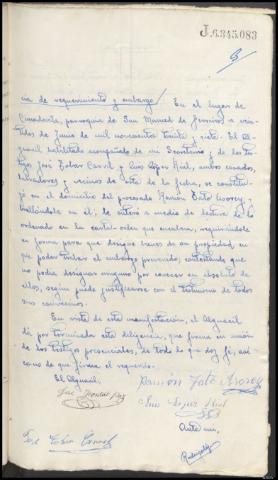 J.6.345.083
cia de requerimiento y embargo/ En el lugar de
parroquia de San Manuel de a vein-
tidos de Junio de mil novecientos treinta y siete. El Al-
guacil habilitado acompañado de mi Secretario, y de los tes-
tigos José Tobar y Luis López Real, ambos casados,
labradores y vecinos de esta de la fecha, se constitu-
yó en el domicilio del procesado Ramón Fato y
hallándose en él, le entero a medio de lectura de lo
ordenado en la carta-orden que encabeza, requiriéndole
en forma para que designe bienes de su propiedad, en
que poder trabar el embargo prevenido, contestando que
no podia designar ninguno por carecer en absoluto de
ellos, segun puede justificarse con el testimonio de todos
sus convecinos.
En vista de esta manifestación, el Alguacil
dá por terminada esta diligencia, que firma en union
de los testigos presenciales, de todo lo que doy fé, asi
como de que firma el requerido.
El Alguacil,
Ramón Fato
José
Luis López Real
Ante mi,
José Tobar
Rodriguez